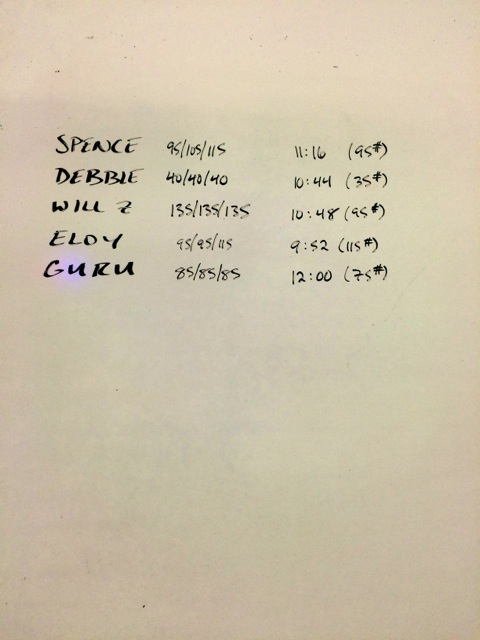 SPENCE 95/105/115 11:16 (95#)
DEBBIE 40/40/40 10:44 (35#)
WILL Z 135/135/135 10:48 (95#)
ELOY 95/95/115 9:52 (115#)
GURU 85/85/85 12:00 (75#)